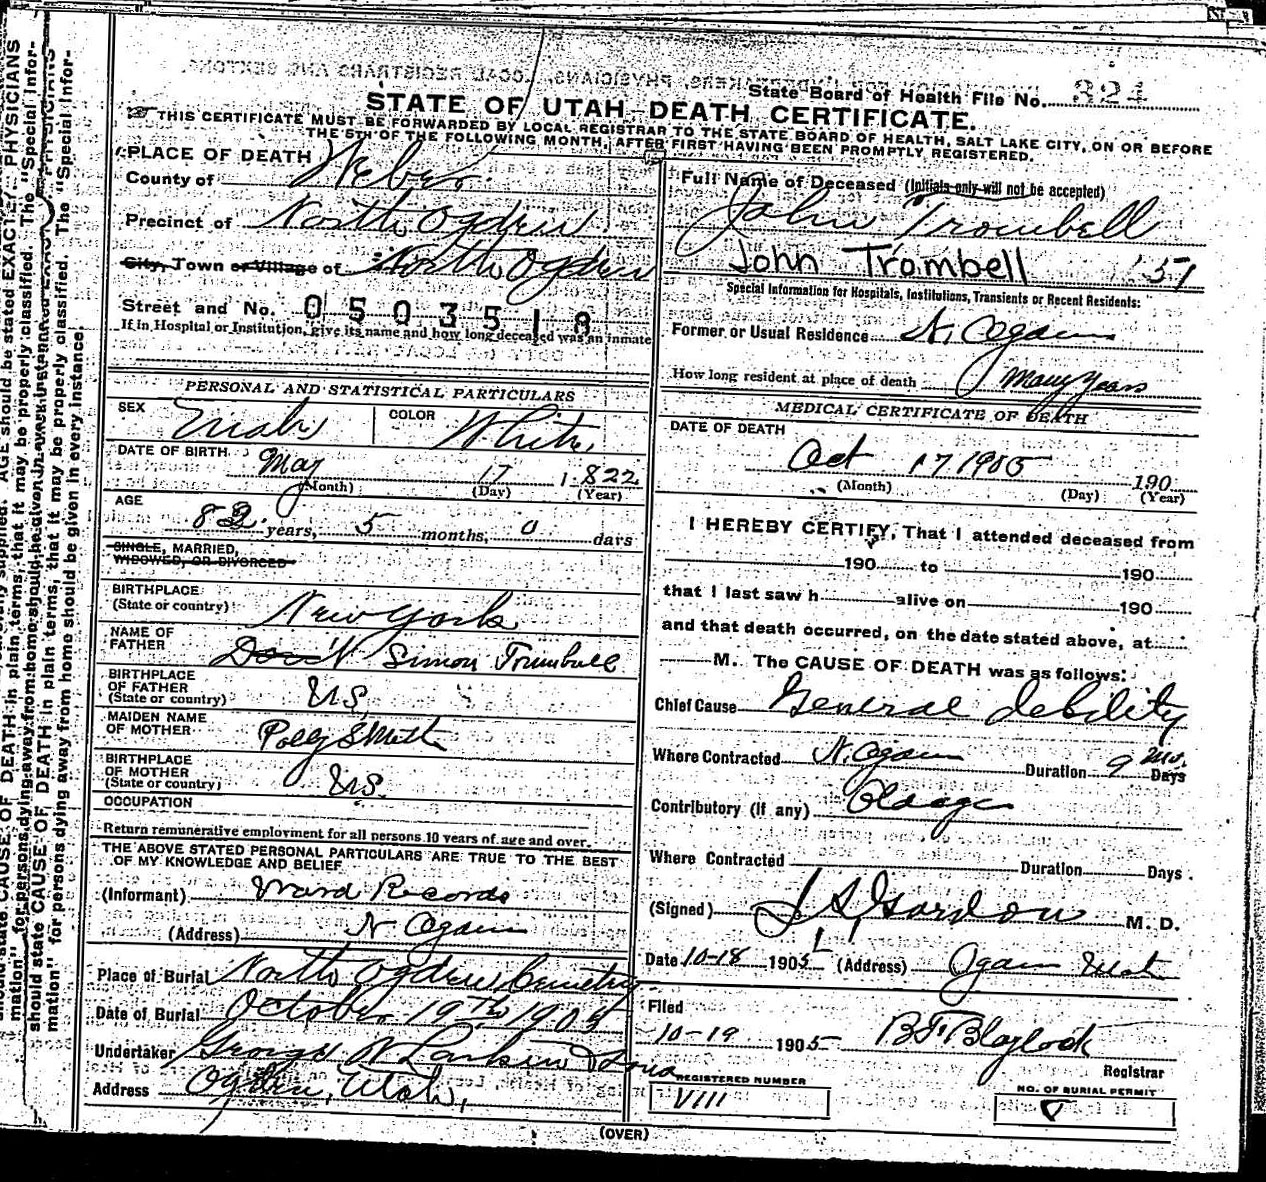 State Board of Health File No. 324
STATE OF UTAH—DEATH CERTIFICATE.
THIS CERTIFICATE MUST BE FORWARDED BY LOCAL REGISTRAR TO THE STATE BOARD OF HEALTH, SALT LAKE CITY, ON OR BEFORE
THE 5TH OF THE FOLLOWING MONTH, AFTER FIRST HAVING BEEN PROMPTLY REGISTERED.
PLACE OF DEATH
County of Weber
Precinct of North Ogden
City, Town or Village of North Ogden
Street and No. 0503518
If in Hospital or Institution, give its name and how long deceased was an inmate
PERSONAL AND STATISTICAL PARTICULARS
SEX Male COLOR White
DATE OF BIRTH May 17 1822
(Month) (Day) (Year)
AGE
82 years, 5 months, 0 days
SINGLE, MARRIED,
WIDOWED, OR DIVORCED
BIRTHPLACE
(State or country) New York
NAME OF
FATHER David Simon Trumbull
BIRTHPLACE
OF FATHER
(State or country) U.S.
MAIDEN NAME
OF MOTHER Polly Smith
BIRTHPLACE
OF MOTHER
(State or country) U.S.
OCCUPATION
Return remunerative employment for all persons 10 years of age and over.
THE ABOVE STATED PERSONAL PARTICULARS ARE TRUE TO THE BEST
OF MY KNOWLEDGE AND BELIEF
(Informant) Ward Records
(Address) N Ogden
Place of Burial North Ogden Cemetry
Date of Burial October 19th 1905
Undertaker George W Larkin & Sons
Address Ogden, Utah,
Full Name of Deceased (Initials only will not be accepted)
John Trombell
John Trombell '57
Special Information for Hospitals, Institutions, Transients or Recent Residents:
Former or Usual Residence N. Ogden
How long resident at place of death Many Years
MEDICAL CERTIFICATE OF DEATH
DATE OF DEATH
Oct 17 1905 190
(Month) (Day) (Year)
I HEREBY CERTIFY, That I attended deceased from
190 to 190
that I last saw h alive on 190
and that death occurred, on the date stated above, at
M. The CAUSE OF DEATH was as follows:
Chief Cause General debility
Where Contracted N. Ogden Duration 9 Mo. Days
Contributory (if any) Old age
Where Contracted Duration Days.
(Signed) Gordon M. D.
Date 10-18 1905 (Address) Ogden Utah
Filed
10-19 1905 B.F. Blaylock
Registrar
REGISTERED NUMBER
VIII
NO. OF BURIAL PERMIT
(OVER)
should state CAUSE OF DEATH in plain terms, that it may be properly classified. The "Special Infor-
mation" for persons dying away from home should be given in every instance.